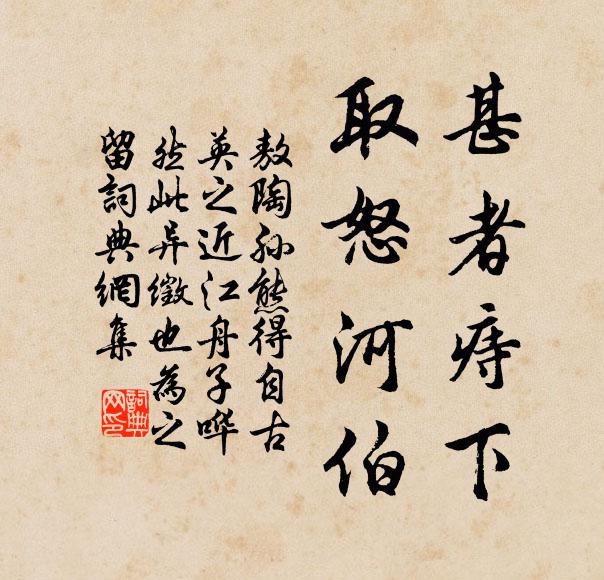 甚者痔下
取怒河伯
敖陶孙熊得自古
英之近江舟子哗
然此异徵也為之
留詞典網集
詞典网印